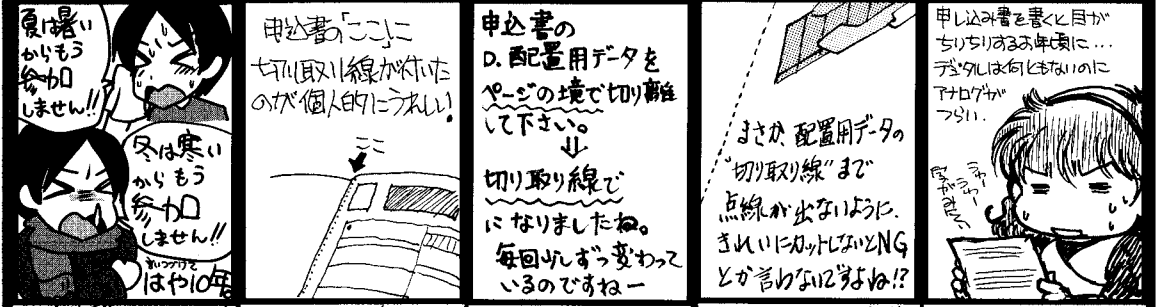 夏は暑い
からもう
参加
しません!!
冬は寒い
からもう
参加
しません!!
はや10年
申込書の「ここ」に
切り取り線が付いた
のが個人的にうれしい。
ここ
申込書の
D.配置用データを
ページの境で切り離
して下さい。
⇓
切り取り線で
になりましたね。
毎回少しずつ変わって
いるのですねー
まさか、配置用データの
"切り取り線"まで
点線が出ないように、
きれいにカットしないとNG
とか言わないですよね!?
申し込み書を書くと目が
ちりちりするお年頃に…
デジタルは何ともないのに
アナログが
つらい.